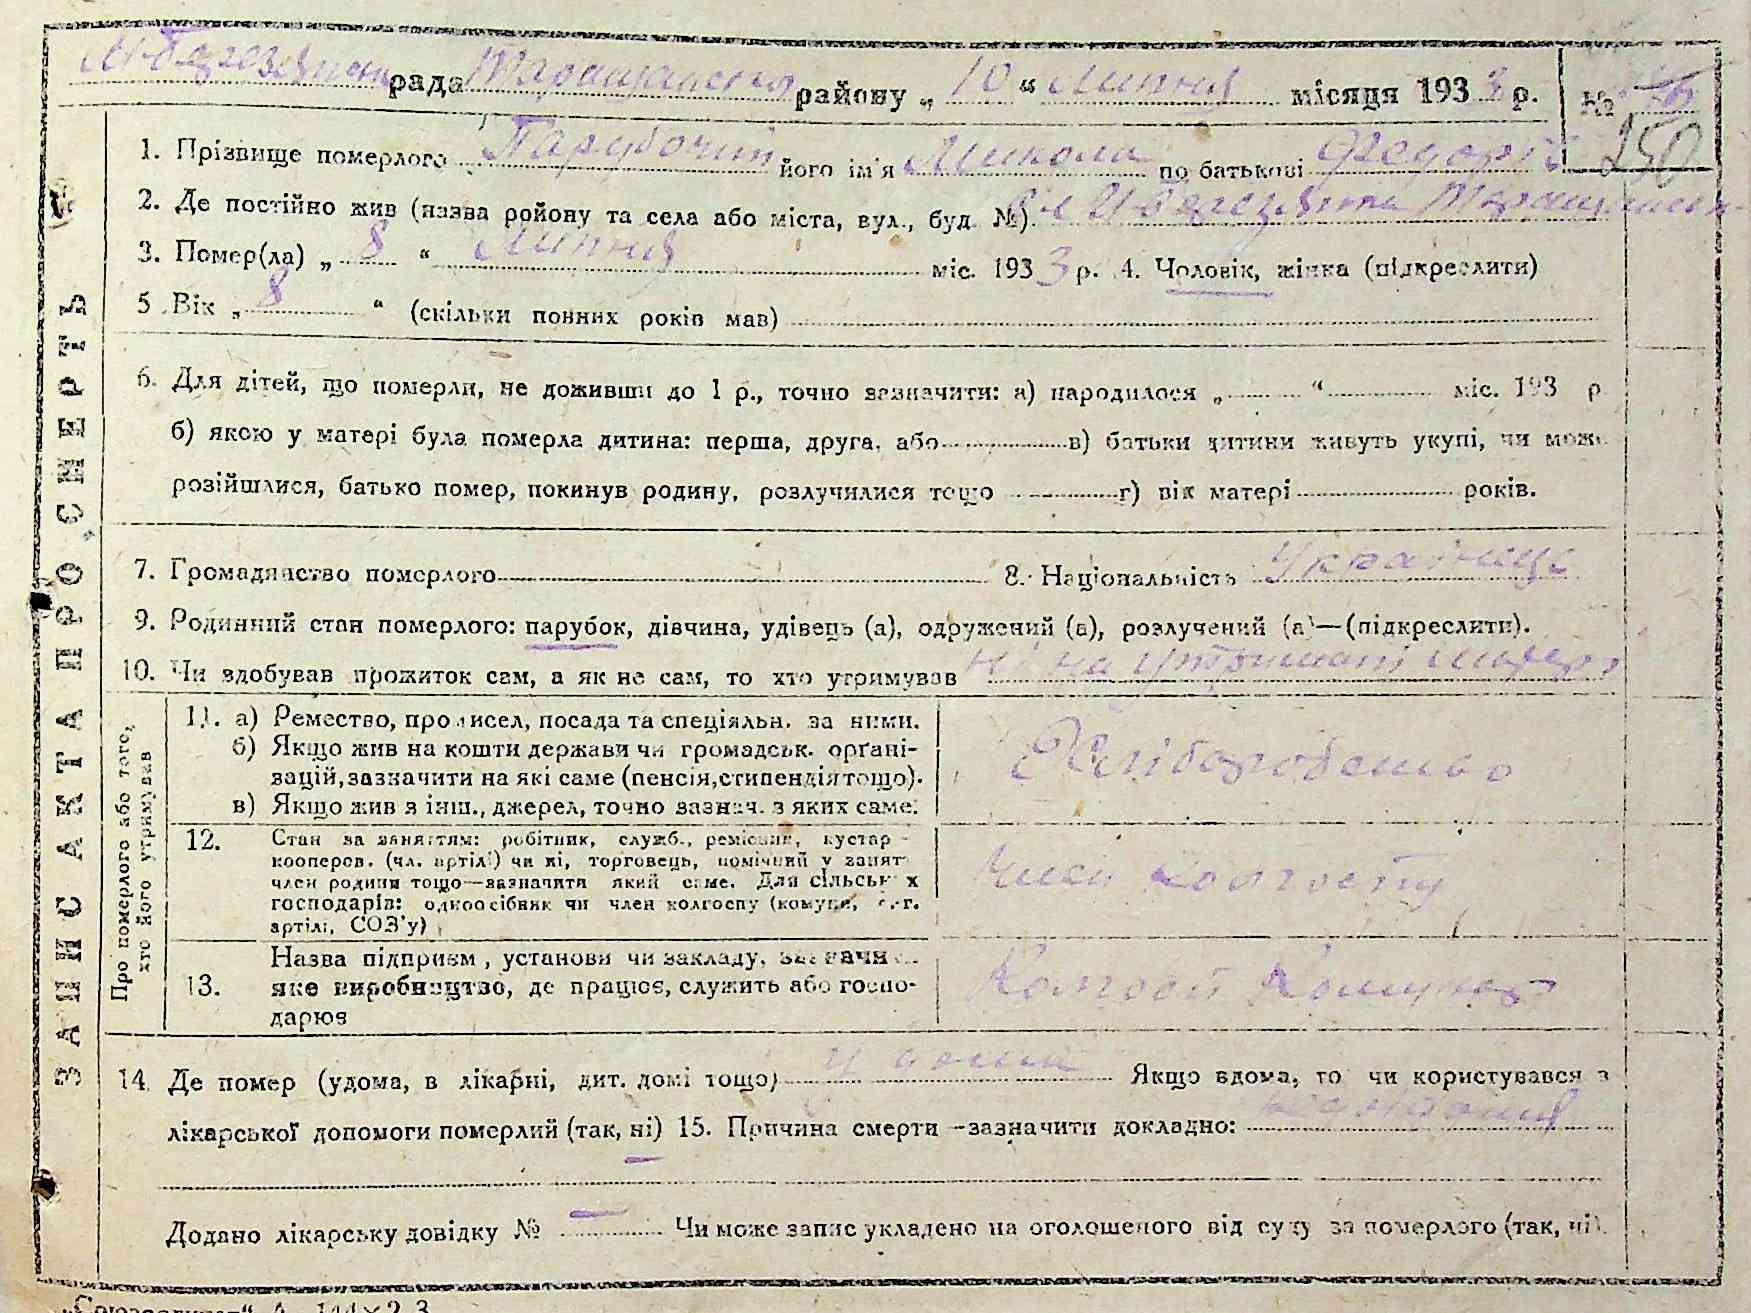 рада Таращанська району „ 10 “ Липня місяця 1933 р. №
250
1. Прізвище померлого Парубочий його ім'я Микола по батькові Федорів
2. Де постійно жив (назва ройону та села або міста, вул., буд. №)
3. Помер(ла) „ 8 “ Липня міс. 1933 р. 4. Чоловік, жінка (підкреслити)
5. Вік „ 8 “ (скільки повних років мав)
6. Для дітей, що померли, не доживши до 1 р., точно зазначити: а) народилося „ “ міс. 193 р
б) якою у матері була померла дитина: перша, друга, або в) батьки дитини живуть укупі, чи може
розійшлися, батько помер, покинув родину, розлучилися тощо г) вік матері років.
7. Громадянство померлого 8. Національність Українець
9. Родинний стан померлого: парубок, дівчина, удівець (а), одружений (а), розлучений (а)—(підкреслити).
10. Чи здобував прожиток сам, а як не сам, то хто утримував ні на утриманні матері
ЗАПИС АКТА ПРО СМЕРТЬ
Про померлого або того,
хто його утримував
11. а) Ремество, промисел, посада та спеціяльн. за ними.
б) Якщо жив на кошти держави чи громадськ. органі-
зацій, зазначити на які саме (пенсія, стипендія тощо).
в) Якщо жив з інш., джерел, точно зазнач. з яких саме:
Хліборобство
12. Стан за заняттям: робітник, служб., ремісник, кустар
кооперов. (чл. артілі) чи ні, торговець, помічний у занят
член родини тощо—зазначити який саме. Для сільськ х
господарів: одноосібник чи член колгоспу (комуни, с.-г.
артілі, СОЗ'у)
Член колгоспу
13. Назва підприєм , установи чи закладу, зазначи
яке виробництво, де працює, служить або госпо-
дарює
Колгосп Комунар
14. Де помер (удома, в лікарні, дит. домі тощо) у дома Якщо вдома, то чи користувався з
лікарської допомоги померлий (так, ні) 15. Причина смерти —зазначити докладно: недоїдання
Додано лікарську довідку № — Чи може запис укладено на оголошеного від суду за померлого (так, ні).